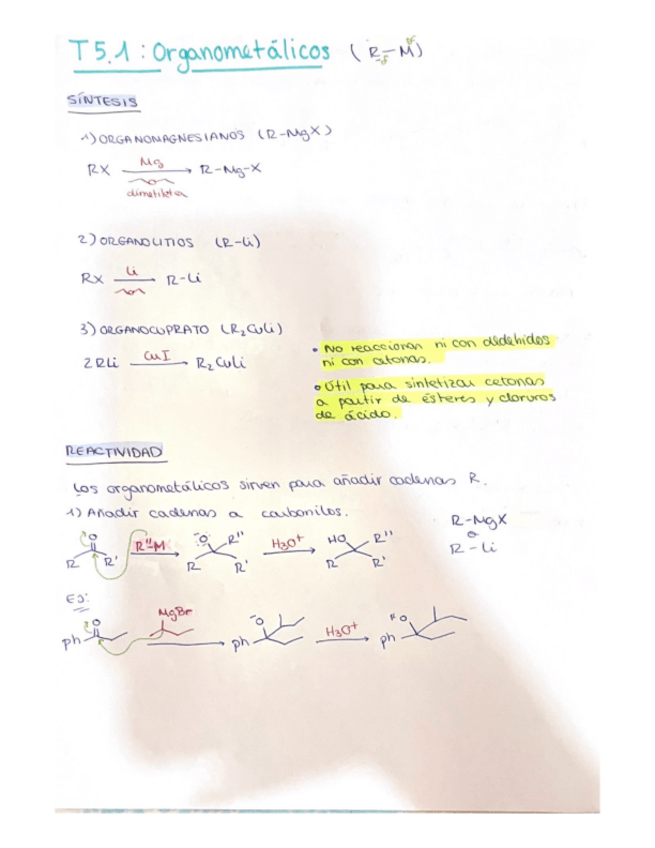 T 5.1 : Organometálicos (R-M)
SÍNTESIS
1) ORGANOMAGNESIANOS (R-MgX)
Mg
RX → R-Mg-X
dimetileter
2) ORGANOLITIOS (R-Li)
Li
RX → R-Li
3) ORGANOCUPRATO (R₂CuLi)
CuI
2RLi → R₂CuLi
• No reaccionan ni con aldehidos
ni con cetonas.
• Útil para sintetizar cetonas
a partir de ésteres y cloruros
de ácido.
REACTIVIDAD
Los organometálicos sirven para añadir cadenas R.
1) Añadir cadenas a carbonilos.
R-MgX
o
R-Li
O R"-M ⁻O R" H₃O⁺ HO R"
R R' → R R' → R R'
EJ:
O MgBr ⁻O H₃O⁺ HO
ph → ph → ph